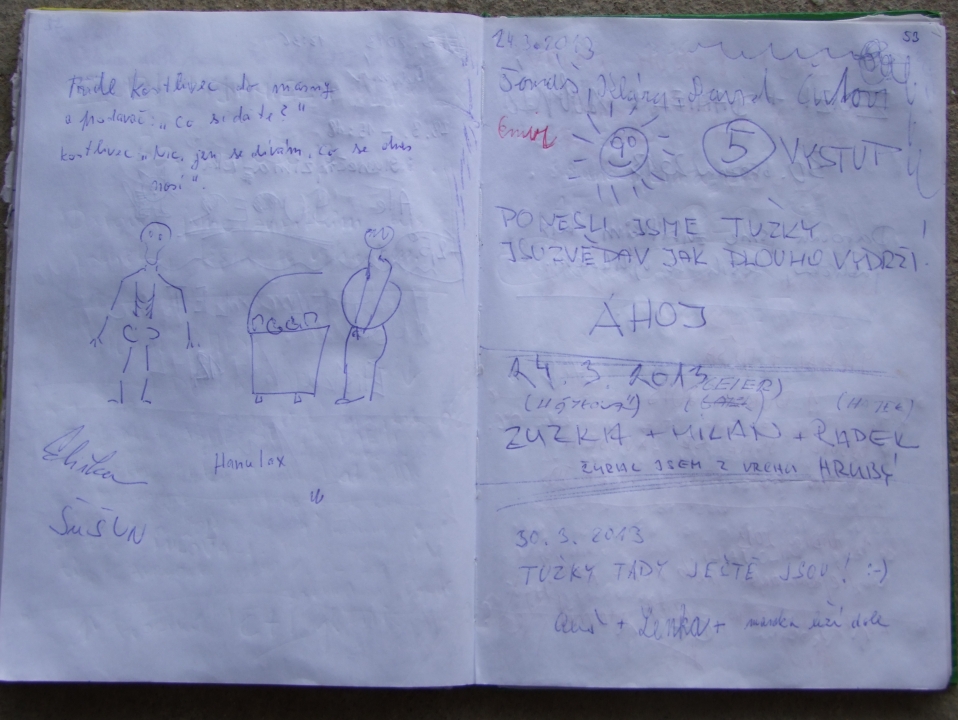 Přijde kostlivec do masny
a prodavač: „Co si dáte?"
kostlivec „Nic, jen se dívám, co se dnes
nosí".
Eliška
Hanulax
ŠUŠUN
53
24.3.2013
Tomáš, Klára, David
Emil
9°
5 VÝSTUP
PONESLI JSME TUŽKY !
JSU ZVĚDAV JAK DLOUHO VYDRŽÍ.
AHOJ
24. 3. 2013
ZUZKA + MILAN + RADEK
JSEM Z VRCHU HRUBÝ
30. 3. 2013
TUŽKY TADY JEŠTĚ JSOU! :-)
+ Lenka + dole